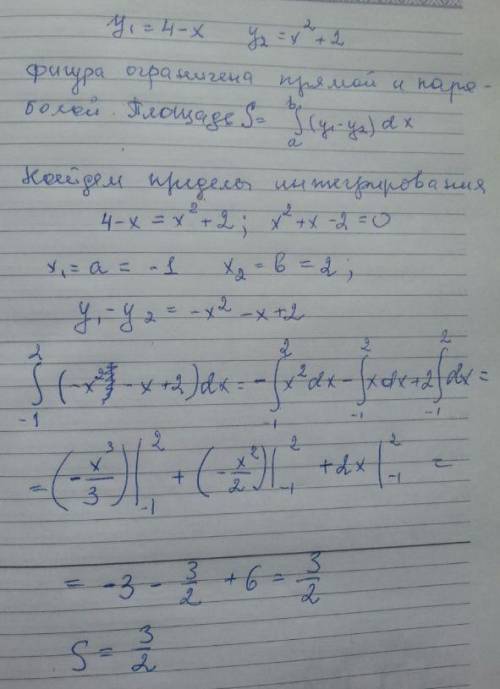 y₁ = 4-x y₂ = x² + 2
фигура ограничена прямой и пара-
болой. Площадь S = ∫ₐᵇ (y₁-y₂) dx
Найдем пределы интегрирования
4-x = x² + 2; x² + x - 2 = 0
x₁ = a = -1 x₂ = b = 2;
y₁ - y₂ = -x² - x + 2
∫₋₁² (-x² - x + 2) dx = -∫₋₁² x² dx - ∫₋₁² x dx + 2∫₋₁² dx =
= (-x³/3) |₋₁² + (-x²/2) |₋₁² + 2x |₋₁² =
= -3 - 3/2 + 6 = 3/2
S = 3/2